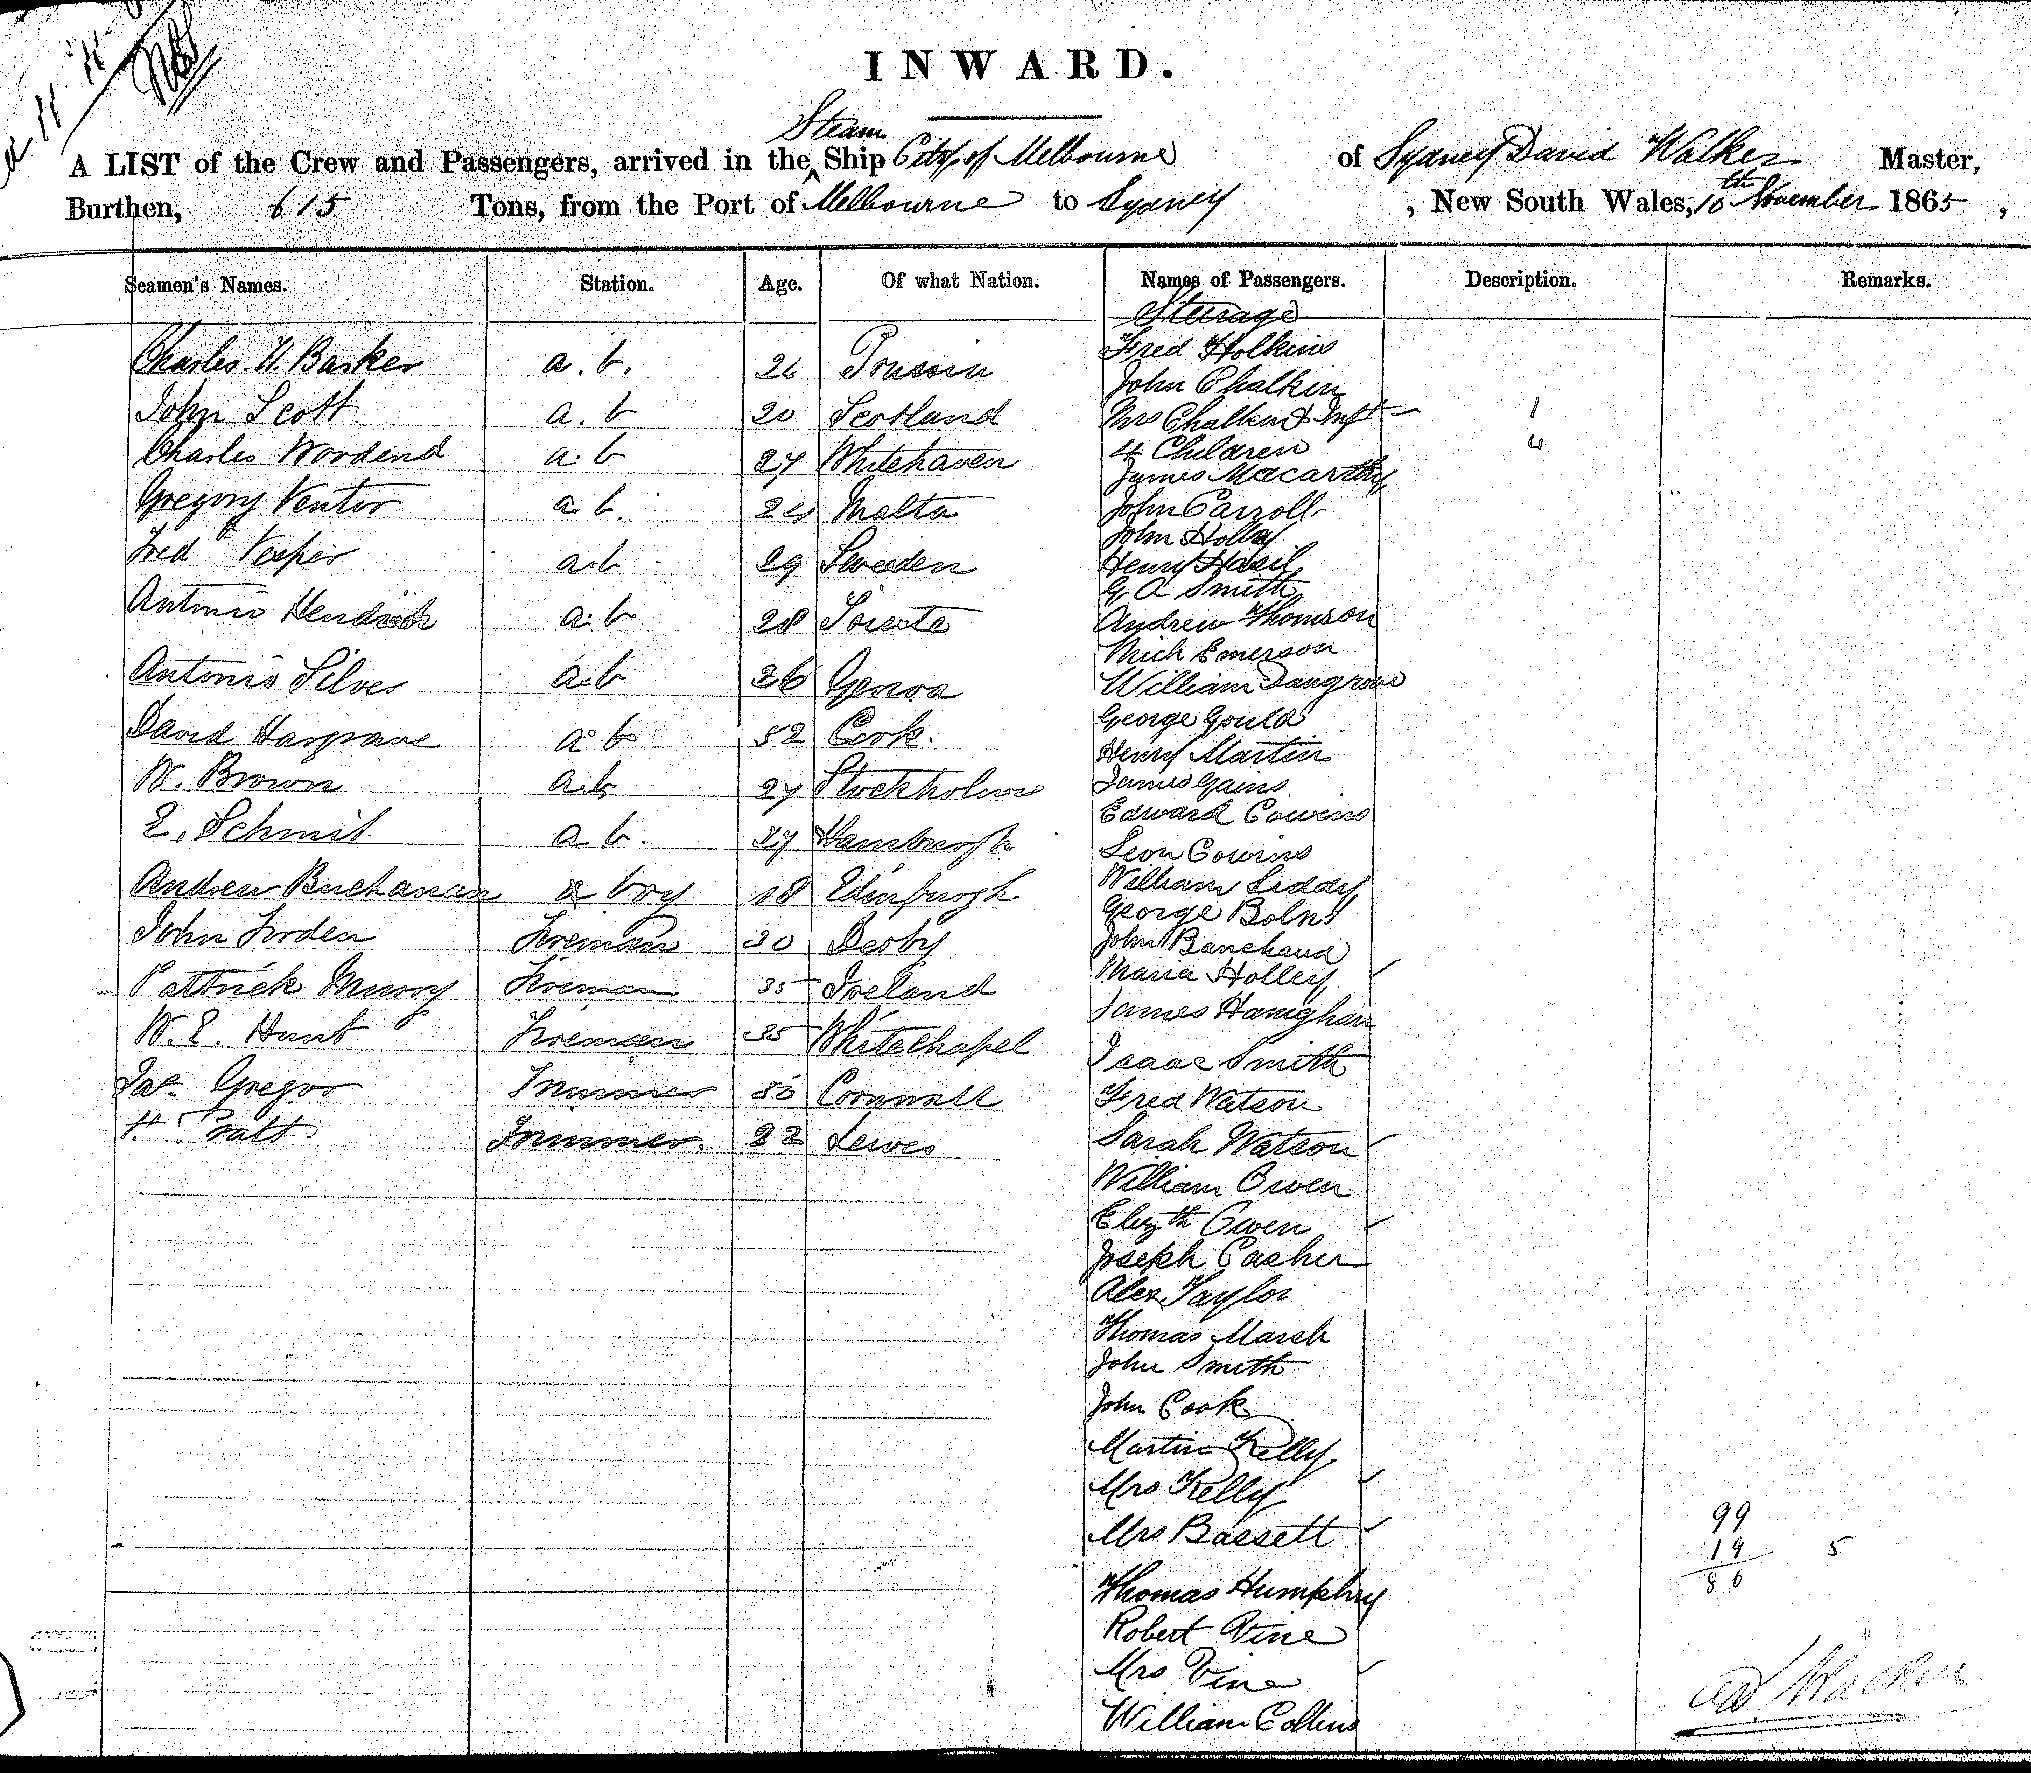 INWARD.
Steam
A LIST of the Crew and Passengers, arrived in the Ship City of Melbourne of Sydney David Walker Master,
Burthen, 615 Tons, from the Port of Melbourne to Sydney, New South Wales, 10th November 1865,
Seamen's Names. Station. Age. Of what Nation. Names of Passengers. Description. Remarks.
Sturage
Charles H. Barker a.b. 26 Prussia Fred Holkins
John Chalkin
John Scott a.b 20 Scotland Mrs Chalkin & Inft 1
4 Children 4
Charles Wordend a.b 27 Whitehaven
James Macarthy
Gregory Ventor a.b. Malta John Carroll
John Holley
Fred a.b 29 Sweden Henry
G A Smith
Antonio a.b 28 Andrew Thomson
Mich Emerson
Antonio Silver a.b 26 Genoa William
George Gould
David Hargrave a b 52 Cork. Henry Martin
W. Brown a.b 27 Stockholm James Gains
Edward Cowens
E. Schmit a.b. 27 Hamburgh Leon Cowens
Andrew Buchanan a boy 18 Edinburgh William Liddy
George
John Forden Fireman 30 Derby John
Maria Holley
Pattrick Murry Fireman 35 Ireland James Hanighan
W. E. Hunt Fireman 35 Whitechapel Isaac Smith
Jas Gregor Trimmer Cornwall Fred Watson
H. Pratt Trimmer. 22 Lewes Sarah Watson
William Owen
Elizth Owen
Joseph Casher
Alex Taylor
Thomas Marsh
John Smith
John Cook
Martin Kelly
Mrs Kelly
99
Mrs Bassett
19 5
80
Thomas Humphry
Robert Vine
Mrs Vine
D. Walker
William Collins